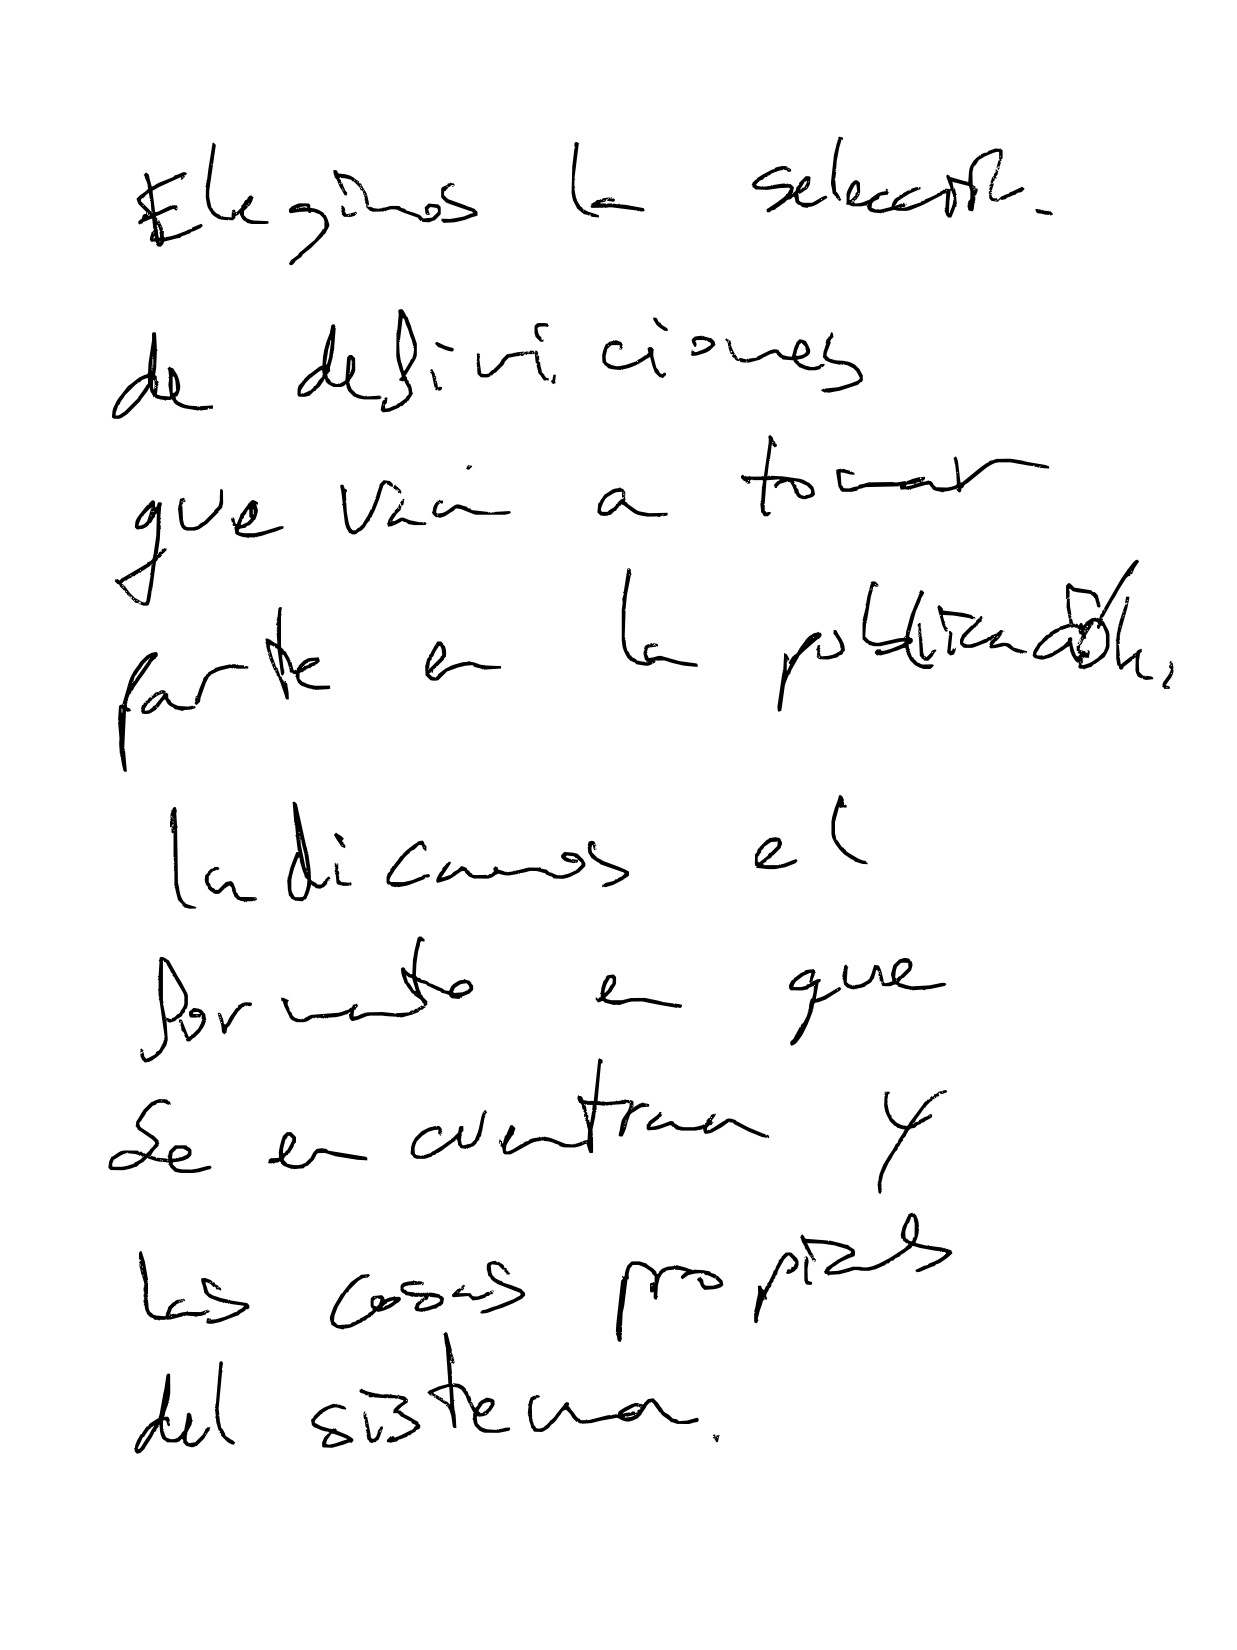 Elegimos la selección
de definiciones
que van a tomar
parte en la publicación,
Indicamos el
formato en que
se encuentran y
las cosas propias
del sistema.